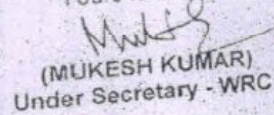 (MUKESH KUMAR)
Under Secretary - WRC